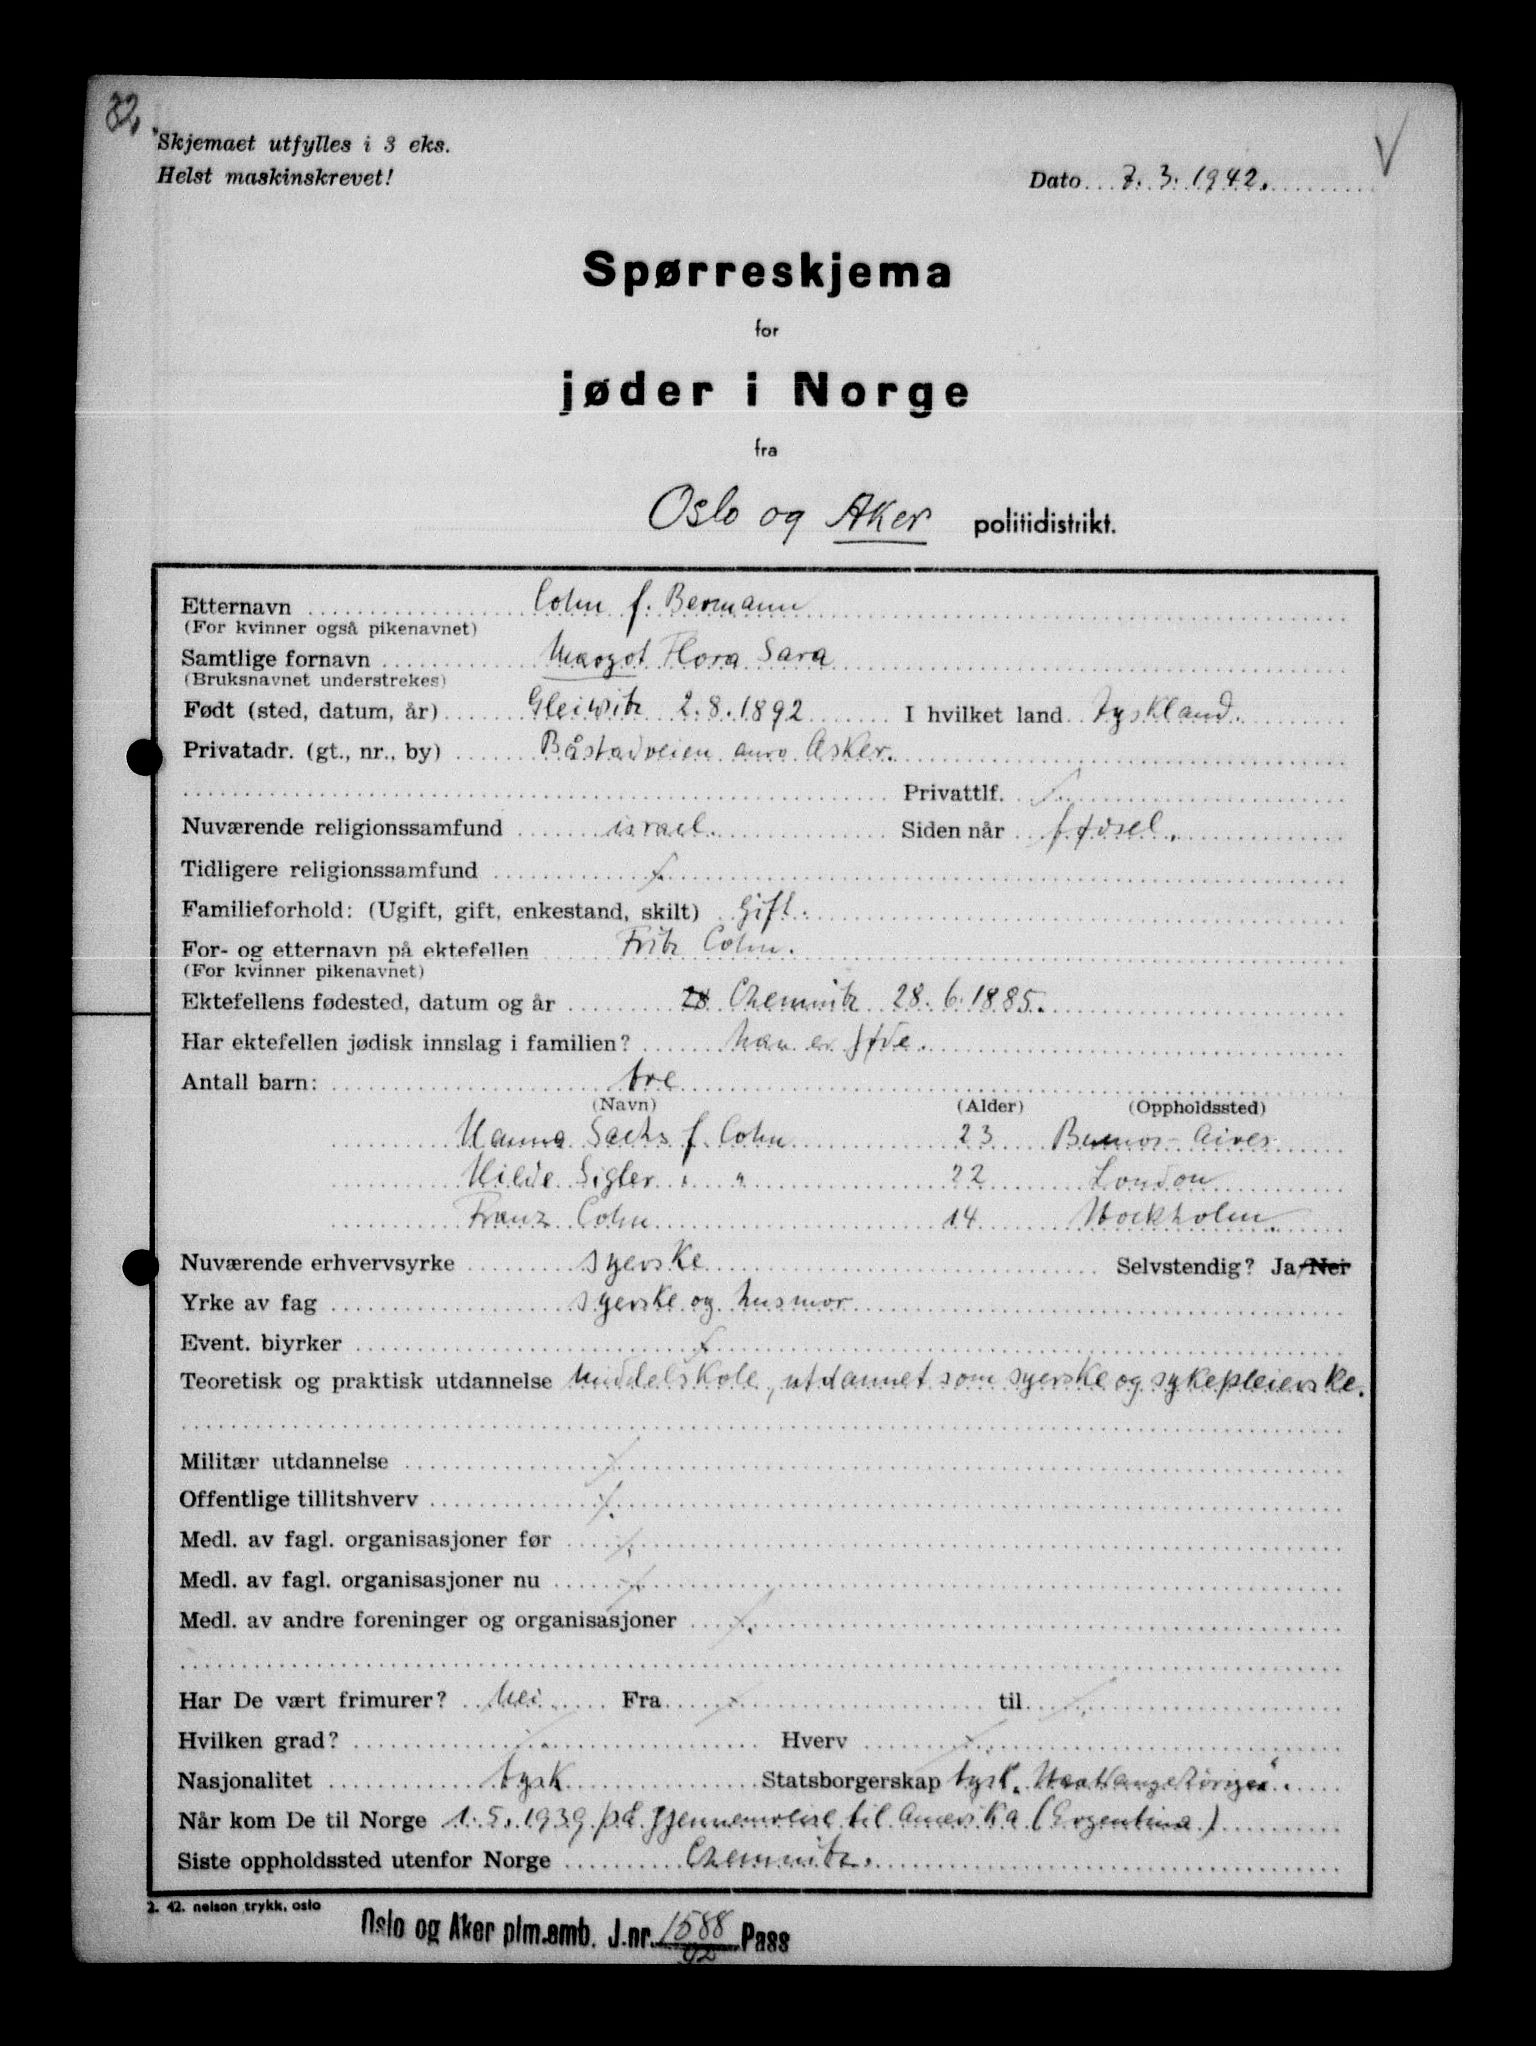 32,
Skjemaet utfylles i 3 eks.
Helst maskinskrevet!
Dato 7. 3. 1942.
Spørreskjema
for
jøder i Norge
fra
Oslo og Aker politidistrikt.
Etternavn Cohn f. Bermann
(For kvinner også pikenavnet)
Samtlige fornavn Margot Flora Sara
(Bruksnavnet understrekes)
Født (sted, datum, år) Gleiwitz 2.8.1892 I hvilket land Tyskland.
Privatadr. (gt., nr., by) Båstadveien Asker.
Privattlf.
Nuværende religionssamfund israel. Siden når fødsel.
Tidligere religionssamfund
Familieforhold: (Ugift, gift, enkestand, skilt) Gift.
For- og etternavn på ektefellen Fritz Cohn.
(For kvinner pikenavnet)
Ektefellens fødested, datum og år 28 Chemnitz 28. 6. 1885.
Har ektefellen jødisk innslag i familien? Man er jøde.
Antall barn: tre
(Navn) (Alder) (Oppholdssted)
Hanna Sachs f. Cohn 23 Buenos-Aires
Hilde Sigler " " 22 London
Franz Cohn 14 Stockholm.
Nuværende erhvervsyrke syerske Selvstendig? Ja/Nei
Yrke av fag syerske og husmor
Event. biyrker
Teoretisk og praktisk utdannelse Middelskole, utdannet som syerske og sykepleierske.
Militær utdannelse
Offentlige tillitshverv
Medl. av fagl. organisasjoner før
Medl. av fagl. organisasjoner nu
Medl. av andre foreninger og organisasjoner
Har De vært frimurer? Nei Fra til
Hvilken grad? Hverv
Nasjonalitet tysk Statsborgerskap tysk.
Når kom De til Norge 1.5.1939 på gjennemreise til Amerika (Ergentina)
Siste oppholdssted utenfor Norge Chemnitz.
2. 42. nelson trykk, oslo
Oslo og Aker plm.emb. J.nr. 1588/42 Pass